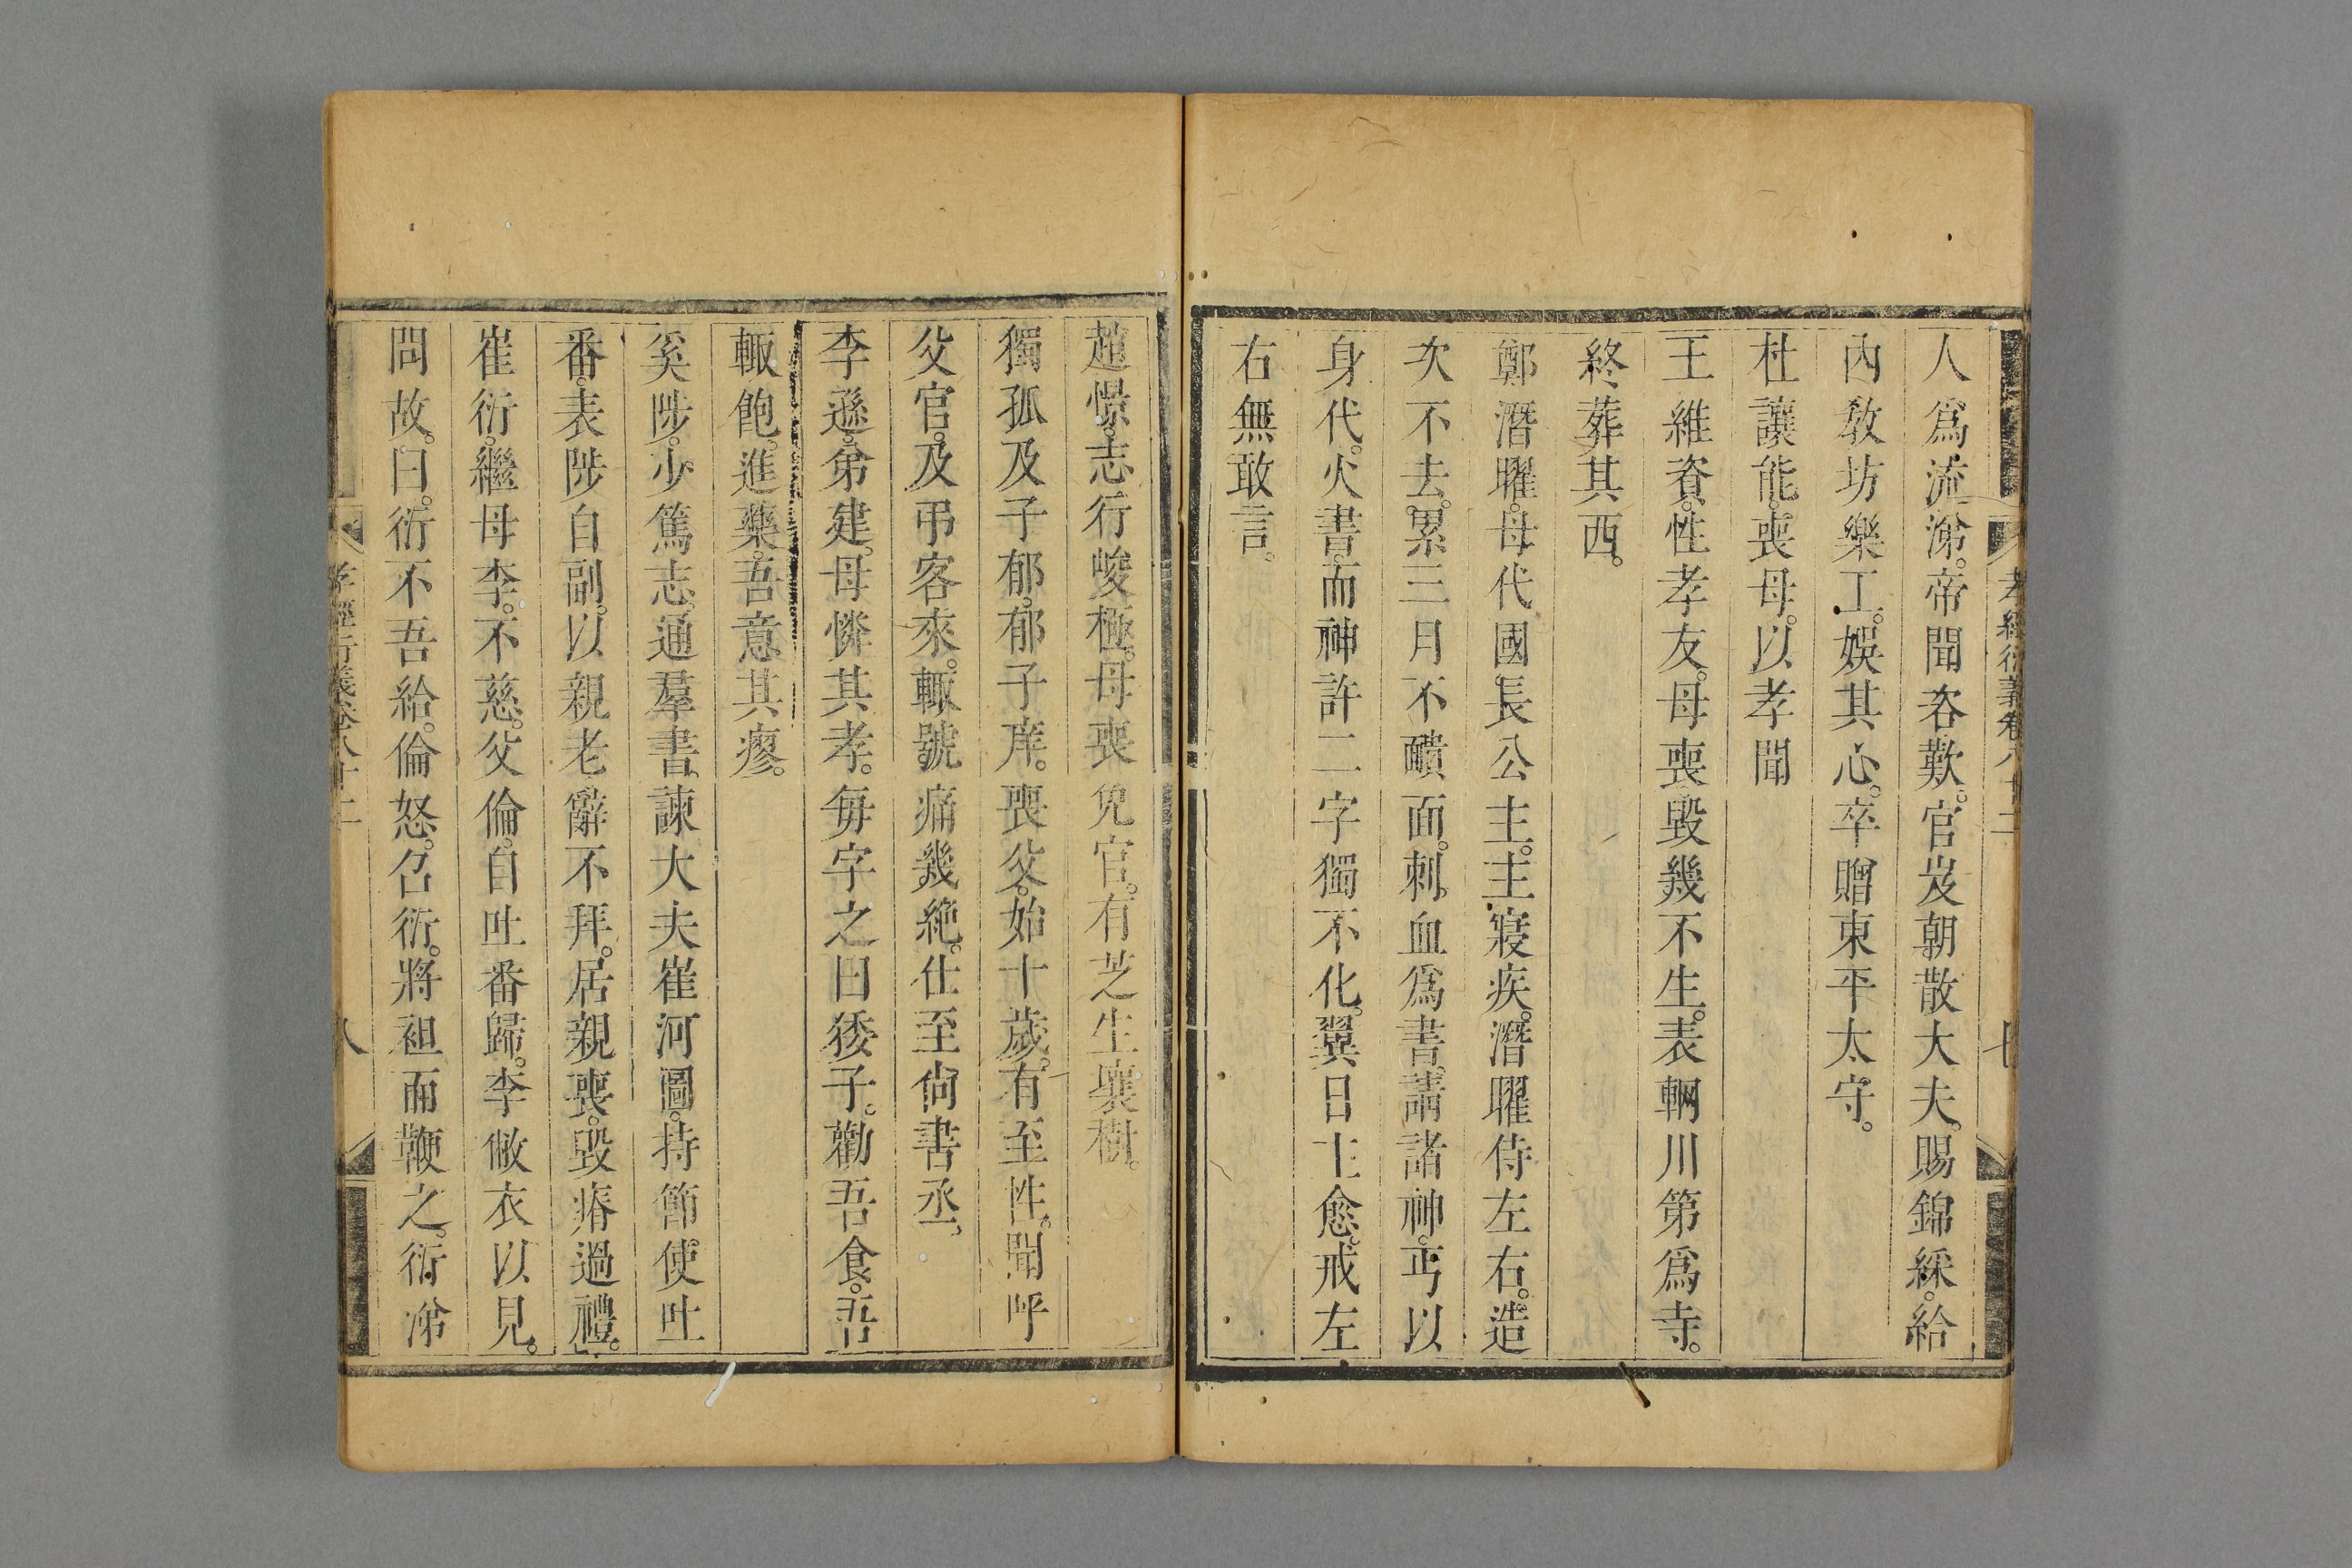 孝經衍義卷八十二 七
人爲流涕。帝聞咨歎。官岌朝散大夫。賜錦綵。給
內敎坊樂工。娛其心。卒贈東平太守。
杜讓能。喪母。以孝聞
王維資。性孝友。母喪毀幾不生。表輞川第爲寺。
終葬其西。
鄭潛曜。母代國長公主。主寢疾。潛曜侍左右。造
次不去。累三月不靧面。刺血爲書。請諸神。丐以
身代。火書。而神許二字獨不化。翼日主愈。戒左
右無敢言。
趙憬。志行峻極。母喪免官。有芝生壤樹。
獨孤及子郁。郁子庠。喪父。始十歲。有至性。聞呼
父官。及弔客來。輒號痛幾絶。仕至尙書丞。
李遜。弟建。母憐其孝。每字之曰倭子。勸吾食。吾
輒飽。進藥。吾意其瘳。
奚陟。少篤志。通羣書。諫大夫崔河圖。持節。使吐
番。表陟自副。以親老辭不拜。居親喪。毀瘠過禮。
崔衍。繼母李。不慈。父倫。自吐番歸。李敝衣以見。
問故。曰。衍不吾給。倫怒。召衍。將袒而鞭之。衍涕
孝經衍義卷八十二 八